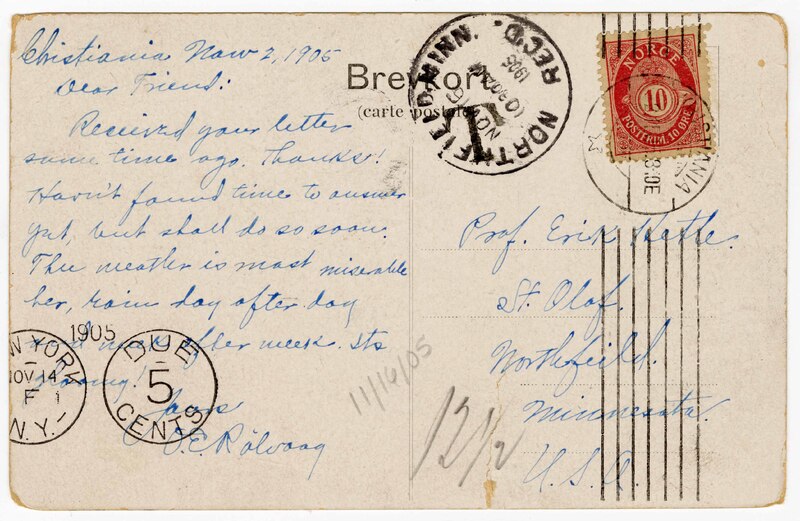 Christiania Nov 2, 1905
Dear Friend:
Received your letter
some time ago. Thanks!
Havn't found time to answer
yet, but shall do so soon.
The weather is most miserable
her, rain day after day
and week after week. Its
Yours
O.E. Rölvaag
NEW YORK
N.Y.
NOV 14
F
1905
DUE
5
CENTS
Brevkort
(carte postale)
NORTHFIELD, MINN.
REC'D.
1905
T
NORGE
10
POSTFRIM. 10 ØRE
Prof. Erik Hetle.
St. Olaf.
Northfield.
Minnesota.
U.S.A.
11/16/05
12/2